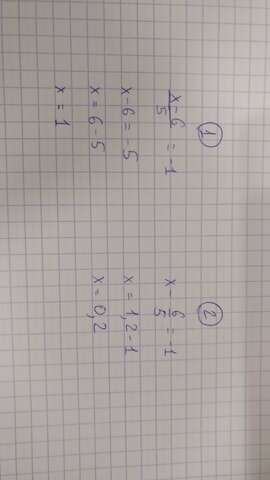 ①
x-6/5 = -1
x-6 = -5
x = 6-5
x = 1
②
x - 6/5 = -1
x = 1,2-1
x = 0,2